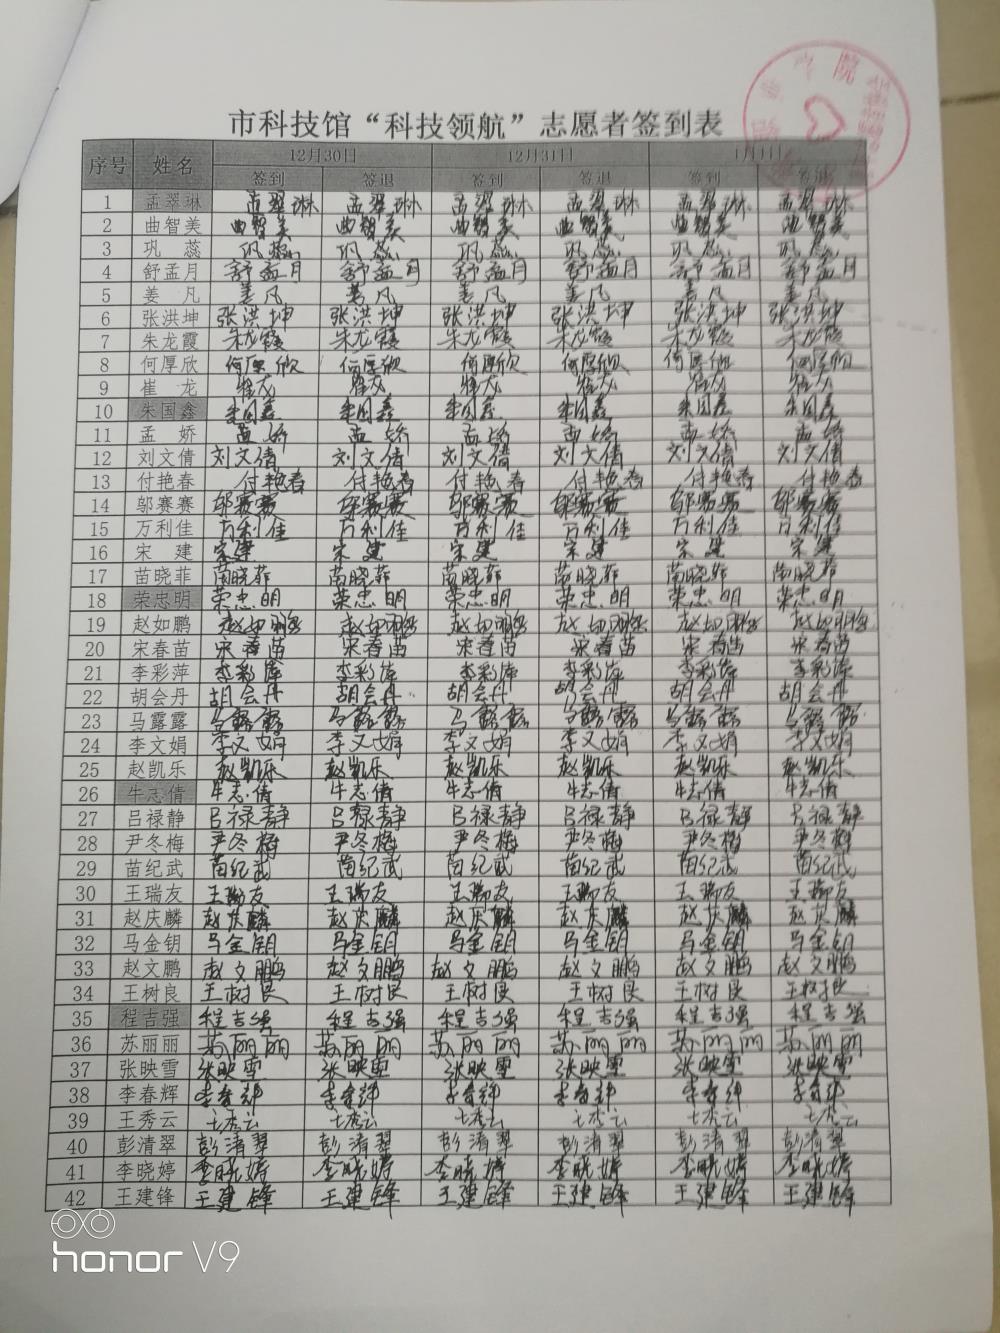 市科技馆“科技领航”志愿者签到表
序号 姓名 12月30日 12月31日 1月1日
签到 签退 签到 签退 签到 签退
1 孟翠琳 孟翠琳 孟翠琳 孟翠琳 孟翠琳 孟翠琳 孟翠琳
2 曲智美 曲智美 曲智美 曲智美 曲智美 曲智美 曲智美
3 巩蕊 巩蕊 巩蕊 巩蕊 巩蕊 巩蕊 巩蕊
4 舒孟月 舒孟月 舒孟月 舒孟月 舒孟月 舒孟月 舒孟月
5 姜凡 姜凡 姜凡 姜凡 姜凡 姜凡 姜凡
6 张洪坤 张洪坤 张洪坤 张洪坤 张洪坤 张洪坤 张洪坤
7 朱龙霞 朱龙霞 朱龙霞 朱龙霞 朱龙霞 朱龙霞 朱龙霞
8 何厚欣 何厚欣 何厚欣 何厚欣 何厚欣 何厚欣 何厚欣
9 崔龙 崔龙 崔龙 崔龙 崔龙 崔龙 崔龙
10 朱国鑫 朱国鑫 朱国鑫 朱国鑫 朱国鑫 朱国鑫 朱国鑫
11 孟娇 孟娇 孟娇 孟娇 孟娇 孟娇 孟娇
12 刘文倩 刘文倩 刘文倩 刘文倩 刘文倩 刘文倩 刘文倩
13 付艳春 付艳春 付艳春 付艳春 付艳春 付艳春 付艳春
14 邬赛赛 邬赛赛 邬赛赛 邬赛赛 邬赛赛 邬赛赛 邬赛赛
15 万利佳 万利佳 万利佳 万利佳 万利佳 万利佳 万利佳
16 宋建 宋建 宋建 宋建 宋建 宋建 宋建
17 苗晓菲 苗晓菲 苗晓菲 苗晓菲 苗晓菲 苗晓菲 苗晓菲
18 荣忠明 荣忠明 荣忠明 荣忠明 荣忠明 荣忠明 荣忠明
19 赵如鹏 赵如鹏 赵如鹏 赵如鹏 赵如鹏 赵如鹏 赵如鹏
20 宋春苗 宋春苗 宋春苗 宋春苗 宋春苗 宋春苗 宋春苗
21 李彩萍 李彩萍 李彩萍 李彩萍 李彩萍 李彩萍 李彩萍
22 胡会丹 胡会丹 胡会丹 胡会丹 胡会丹 胡会丹 胡会丹
23 马露露 马露露 马露露 马露露 马露露 马露露 马露露
24 李文娟 李文娟 李文娟 李文娟 李文娟 李文娟 李文娟
25 赵凯乐 赵凯乐 赵凯乐 赵凯乐 赵凯乐 赵凯乐 赵凯乐
26 牛志倩 牛志倩 牛志倩 牛志倩 牛志倩 牛志倩 牛志倩
27 吕禄静 吕禄静 吕禄静 吕禄静 吕禄静 吕禄静 吕禄静
28 尹冬梅 尹冬梅 尹冬梅 尹冬梅 尹冬梅 尹冬梅 尹冬梅
29 苗纪武 苗纪武 苗纪武 苗纪武 苗纪武 苗纪武 苗纪武
30 王瑞友 王瑞友 王瑞友 王瑞友 王瑞友 王瑞友 王瑞友
31 赵庆麟 赵庆麟 赵庆麟 赵庆麟 赵庆麟 赵庆麟 赵庆麟
32 马金钥 马金钥 马金钥 马金钥 马金钥 马金钥 马金钥
33 赵文鹏 赵文鹏 赵文鹏 赵文鹏 赵文鹏 赵文鹏 赵文鹏
34 王树良 王树良 王树良 王树良 王树良 王树良 王树良
35 程吉强 程吉强 程吉强 程吉强 程吉强 程吉强 程吉强
36 苏丽丽 苏丽丽 苏丽丽 苏丽丽 苏丽丽 苏丽丽 苏丽丽
37 张映雪 张映雪 张映雪 张映雪 张映雪 张映雪 张映雪
38 李春辉 李春辉 李春辉 李春辉 李春辉 李春辉 李春辉
39 王秀云 王秀云 王秀云 王秀云 王秀云 王秀云 王秀云
40 彭清翠 彭清翠 彭清翠 彭清翠 彭清翠 彭清翠 彭清翠
41 李晓婷 李晓婷 李晓婷 李晓婷 李晓婷 李晓婷 李晓婷
42 王建锋 王建锋 王建锋 王建锋 王建锋 王建锋 王建锋
honor V9